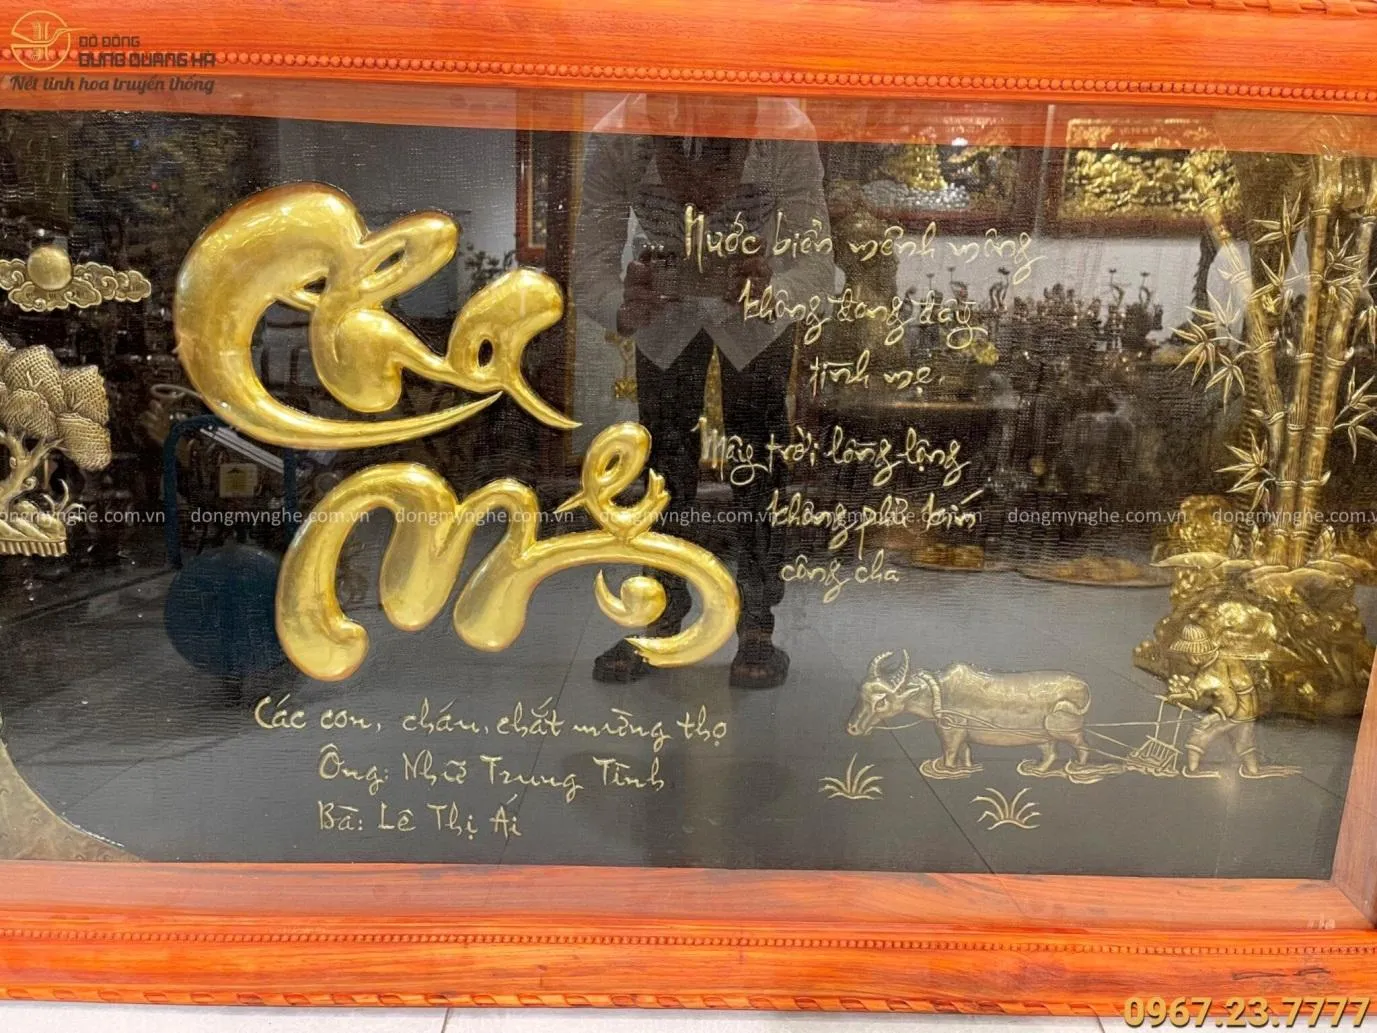 ĐỒ ĐỒNG
DUNG QUANG HÀ
Nét tinh hoa truyền thống
Cha
Mẹ
... Nước biển mênh mông
không đong đầy
tình mẹ,
Mây trời lồng lộng
không phủ kín
công cha
Các con, cháu, chắt mừng thọ
Ông: Nhữ Trung Tình
Bà: Lê Thị Ái
dongmynghe.com.vn dongmynghe.com.vn dongmynghe.com.vn dongmynghe.com.vn dongmynghe.com.vn dongmynghe.com.vn dongmynghe.com.vn
0967.23.7777